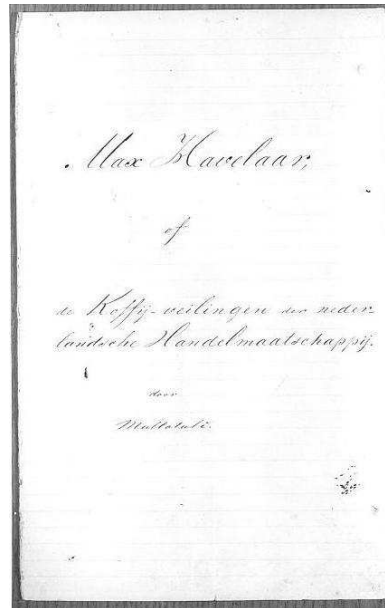 Max Havelaar,
of
de Koffij-veilingen der neder-
landsche Handelmaatschappij.
door
Multatuli.